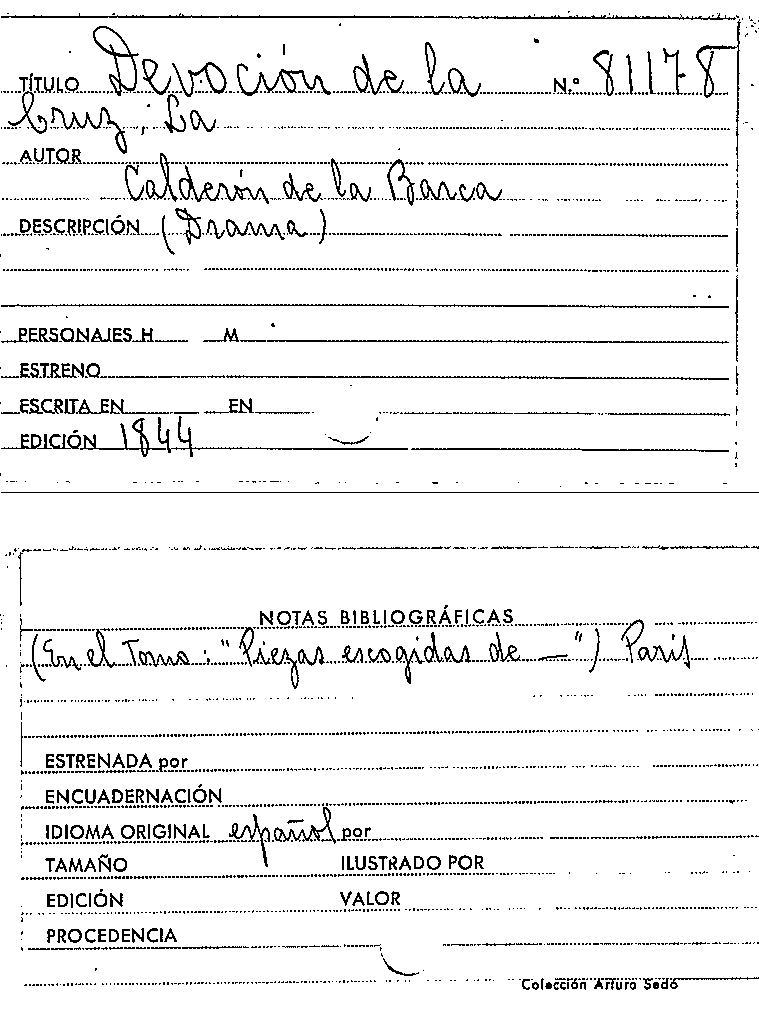 TÍTULO Devoción de la N.º 81178
Cruz, La
AUTOR
Calderón de la Barca
DESCRIPCIÓN (Drama)
PERSONAJES H M
ESTRENO
ESCRITA EN EN
EDICIÓN 1844
NOTAS BIBLIOGRÁFICAS
(En el Tomo: "Piezas escogidas de —") París
ESTRENADA por
ENCUADERNACIÓN
IDIOMA ORIGINAL español por
TAMAÑO ILUSTRADO POR
EDICIÓN VALOR
PROCEDENCIA
Colección Arturo Sedó